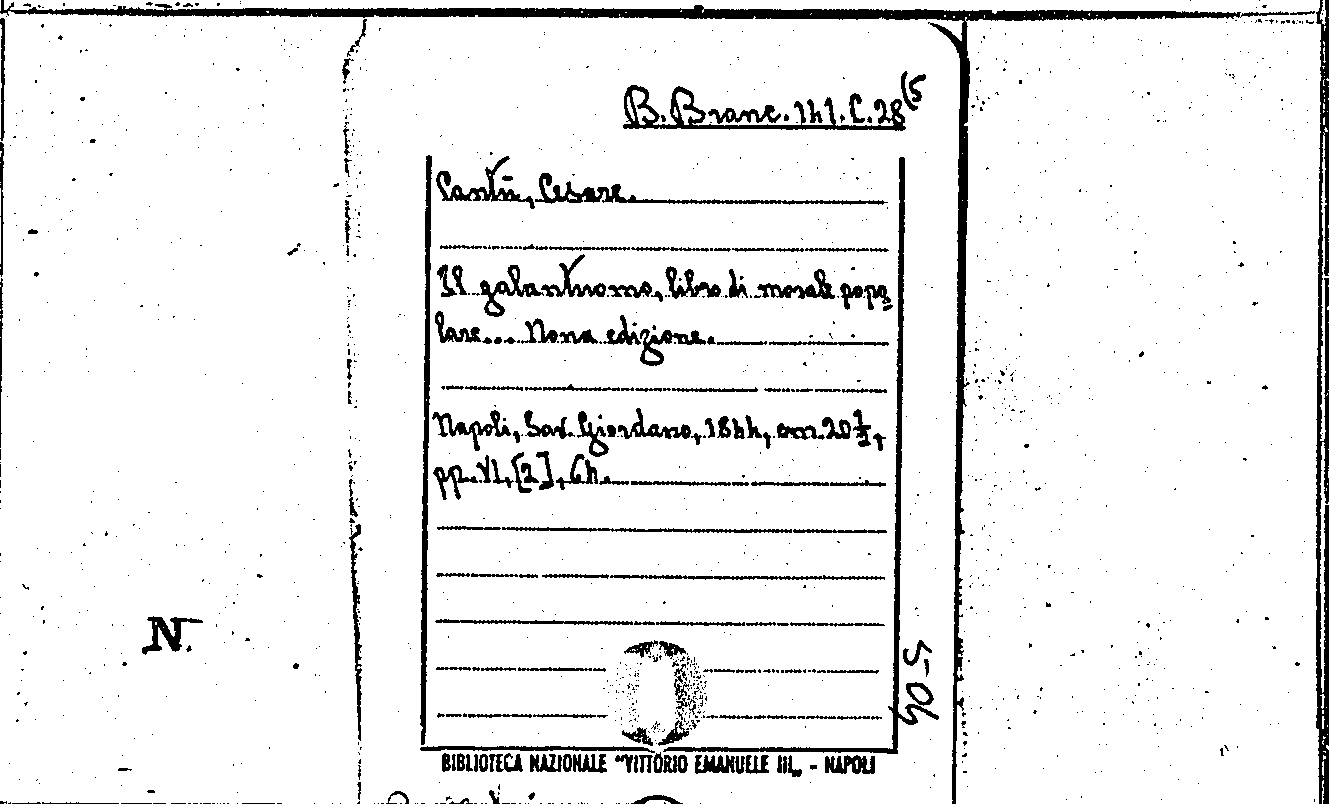 B. Branc. 141. C. 28 (5
Cantù, Cesare.
Il galantuomo, libro di morale popo=
lare... Nona edizione.
Napoli, Sav. Giordano, 1844, cm. 20 1/2,
pp. VI, [2], 64.
N.
BIBLIOTECA NAZIONALE "VITTORIO EMANUELE III„ - NAPOLI